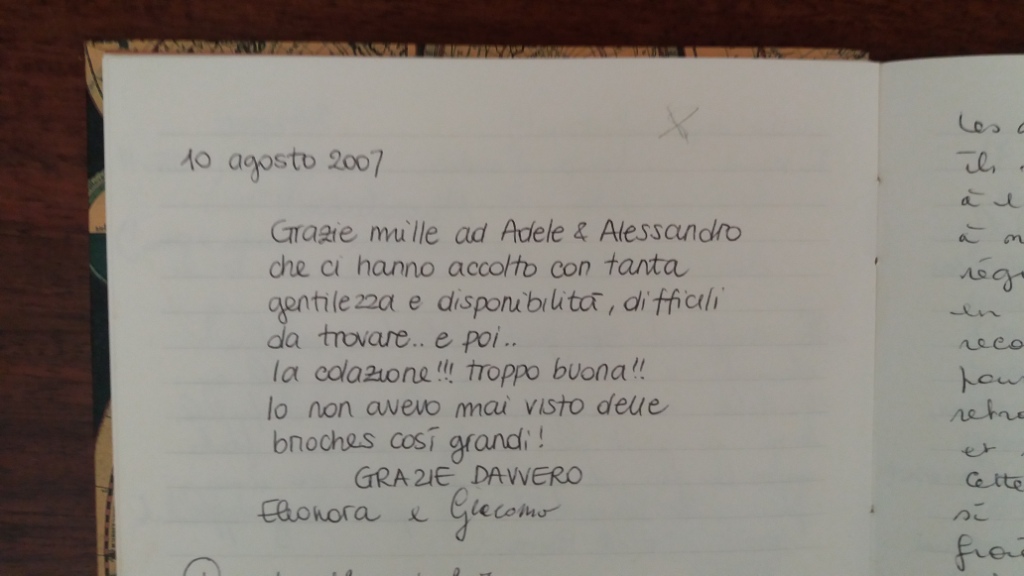 10 agosto 2007
Grazie mille ad Adele & Alessandro
che ci hanno accolto con tanta
gentilezza e disponibilità, difficili
da trovare.. e poi..
la colazione!!! troppo buona!!
Io non avevo mai visto delle
brioches così grandi!
GRAZIE DAVVERO
Eleonora e Giacomo
les
ils
à l
à
en
pour
et
Cette
si